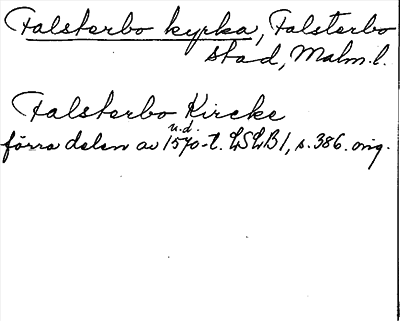 Falsterbo kyrka, Falsterbo
stad, Malm. l.
Falsterbo Kircke
u.d.
förra delen av 1570-t. LSLB 1, s. 386. orig.